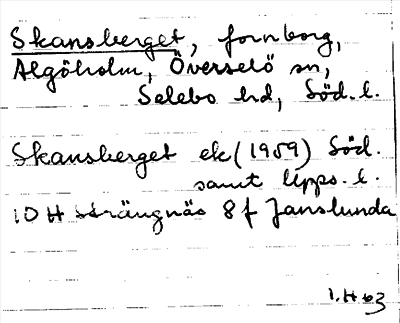 Skansberget, fornborg,
Algöholm, Överselö sn,
Selebo hd, Söd. l.
Skansberget ek (1959) Söd.
samt Upps. l.
10 H Strängnäs 8 f Janslunda
I.H 63